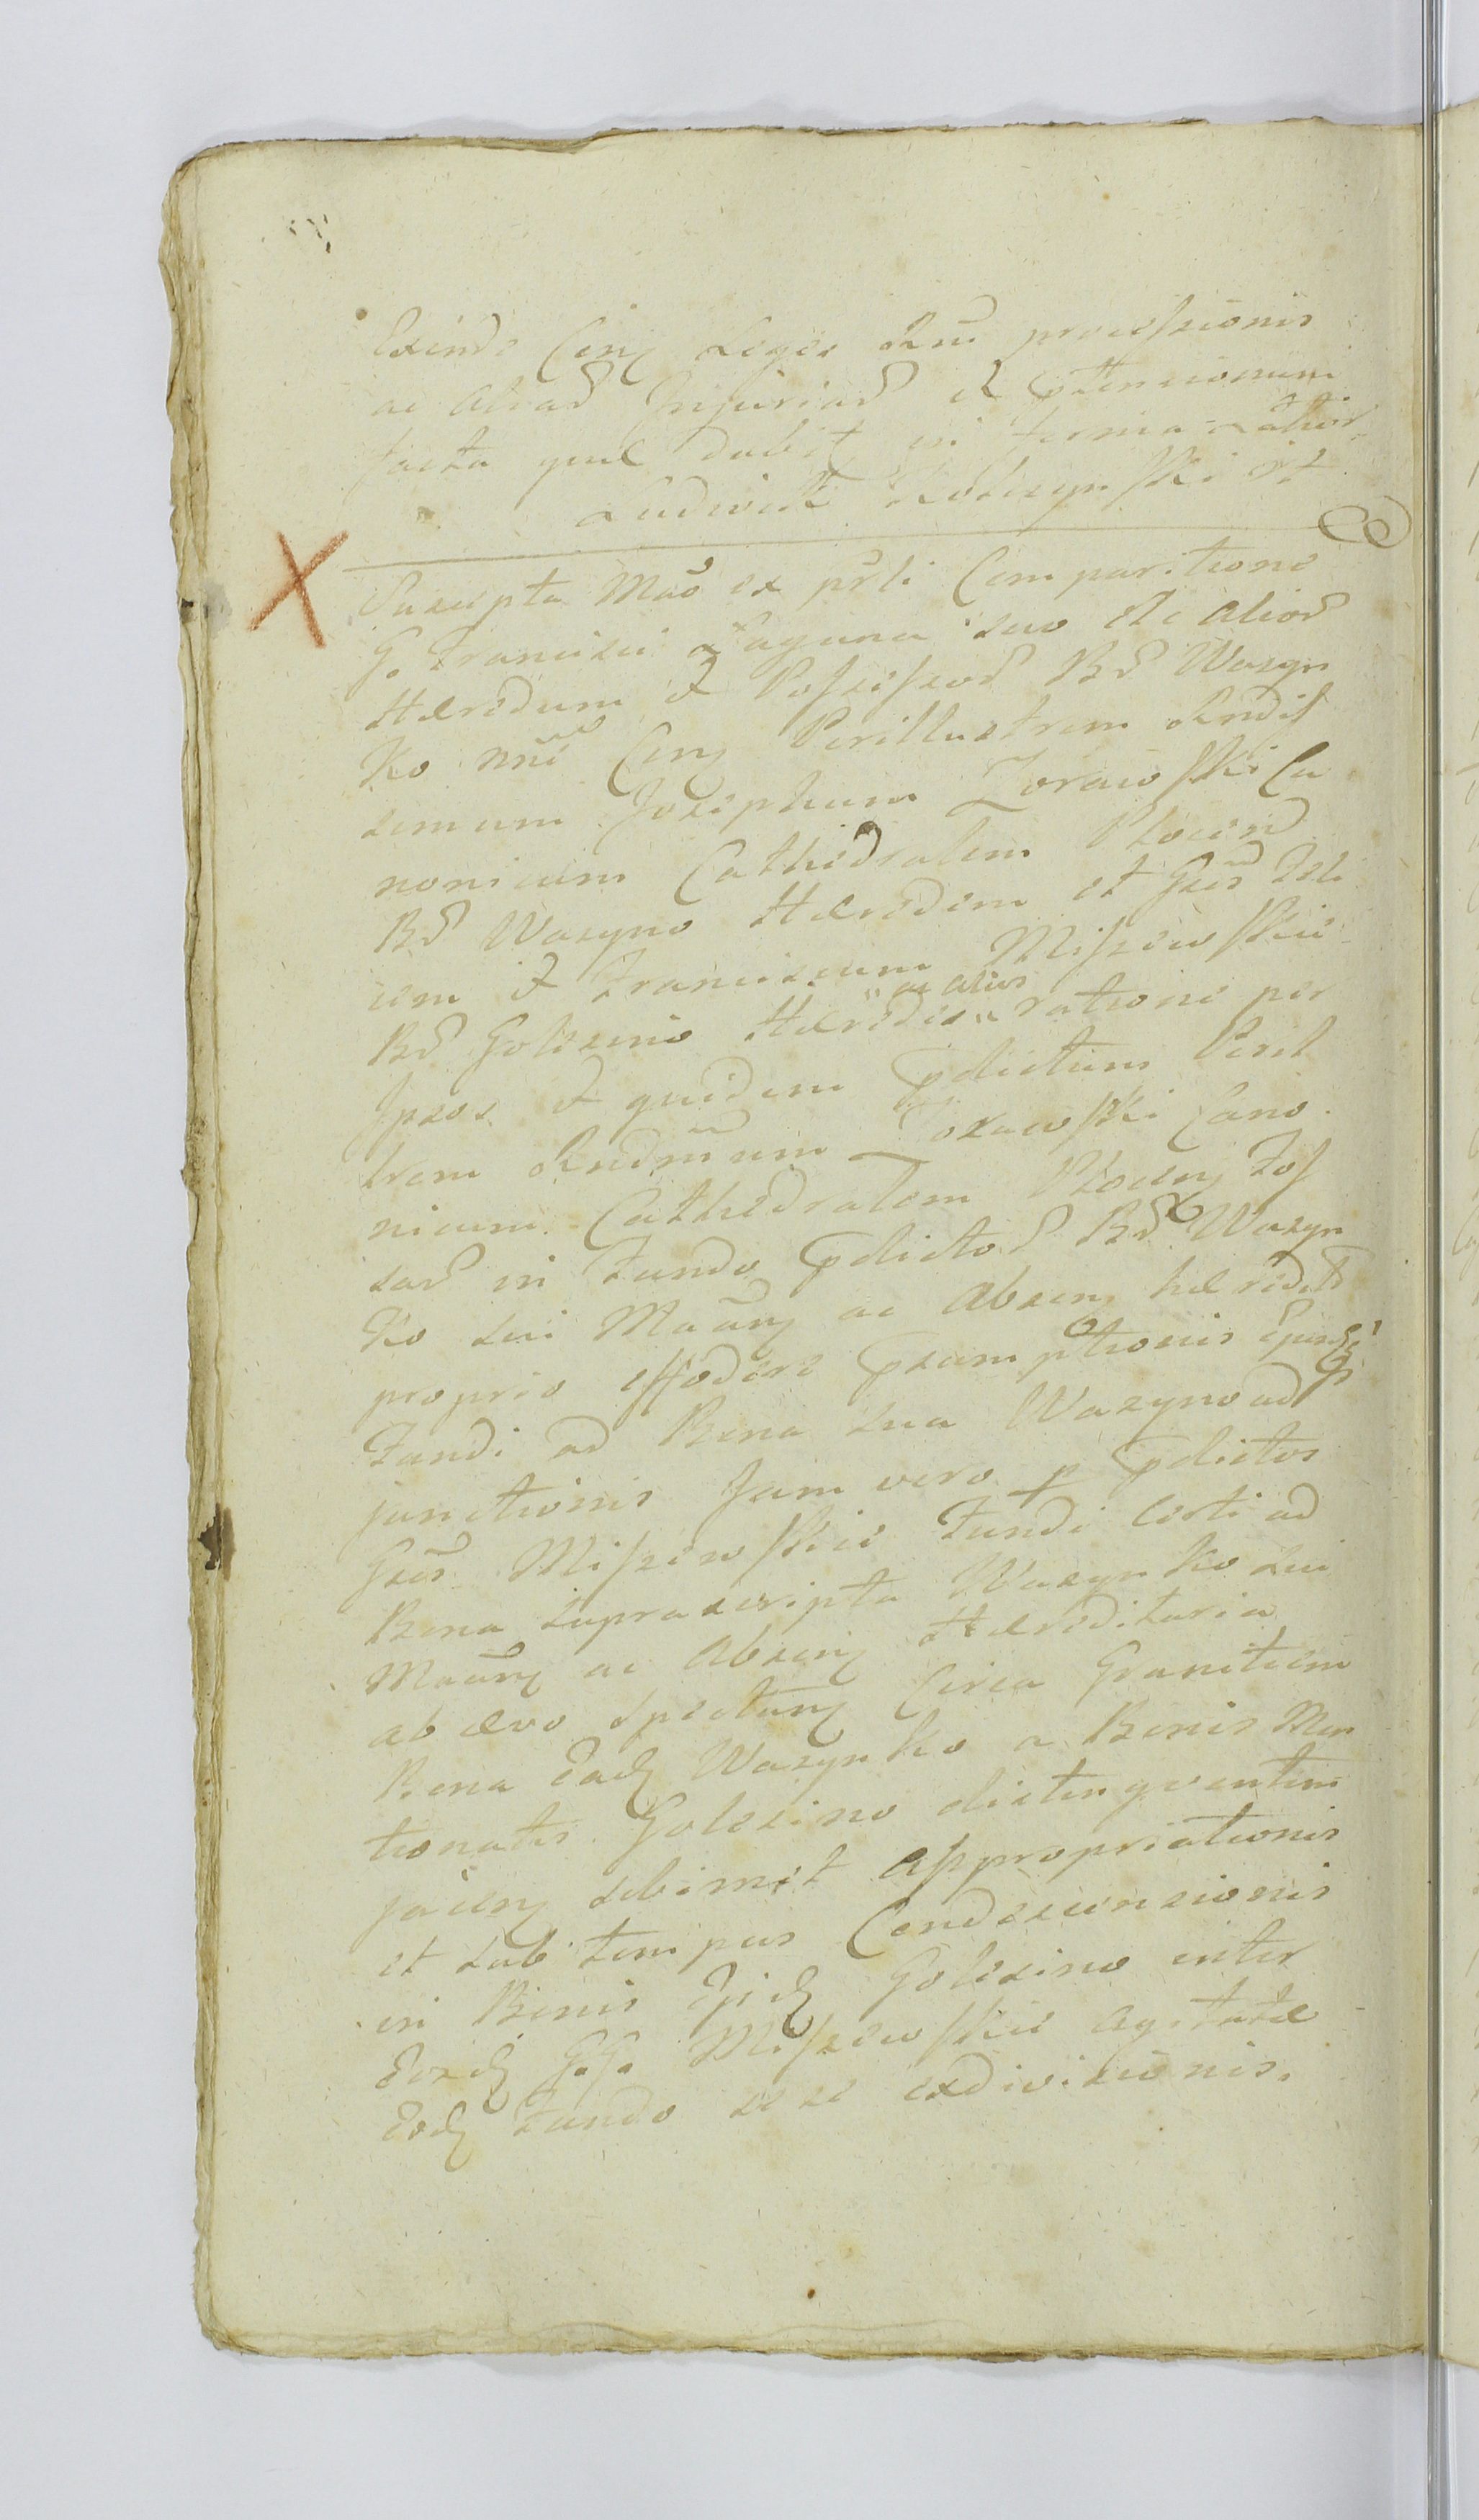 Exinde Conz Leges Rni processionis
ac aliaru Injuriaru et ptensionum
facta quae dabit in termia
Ludwik Kolczynski
Suscepta Mao ex prli Comparitione
G. Francisci Laguna suo et alior
Haeredum et Possessor Br Wazyn
Ko nne Conz Perillustrem Rndis
simum Josephum Zorawski Ca
nonicum Cathedralem Plocen
Br Wazyno Haeredem et Gsos Feli
cem et Franciscum Miszewskie
Br Golezino Haeredes " ac alios " ratione per
Ipsos et quidem pdictum Peril
trem Rndmum Zorawski Cano
nicum Cathedralem Plocenz Fos
sar in Fundo pdictor Br Wazyn
Ko sui Maanz ac Absenz haeredit
proprio effodere psumptionis
Fundi ad Bona sua Wazyno ad
junctionis Jam vero p pdictos
Gsos Miszewskie Fundi certi ad
Bona suprascripta Wazynko sui
Maanz ac Absenz Haereditaria
ab aevo spectanz Circa Granitiem
Bona Eadz Wazynko a Bonis Men
tionatis Golezino distingventem
jacenz sibimet Appropriationis
et sub tempus Condescensionis
in Bonis Golezino inter
Eosdz G.G. Miszewskie agitatae
Eodz Fundo sese exdivisionis.